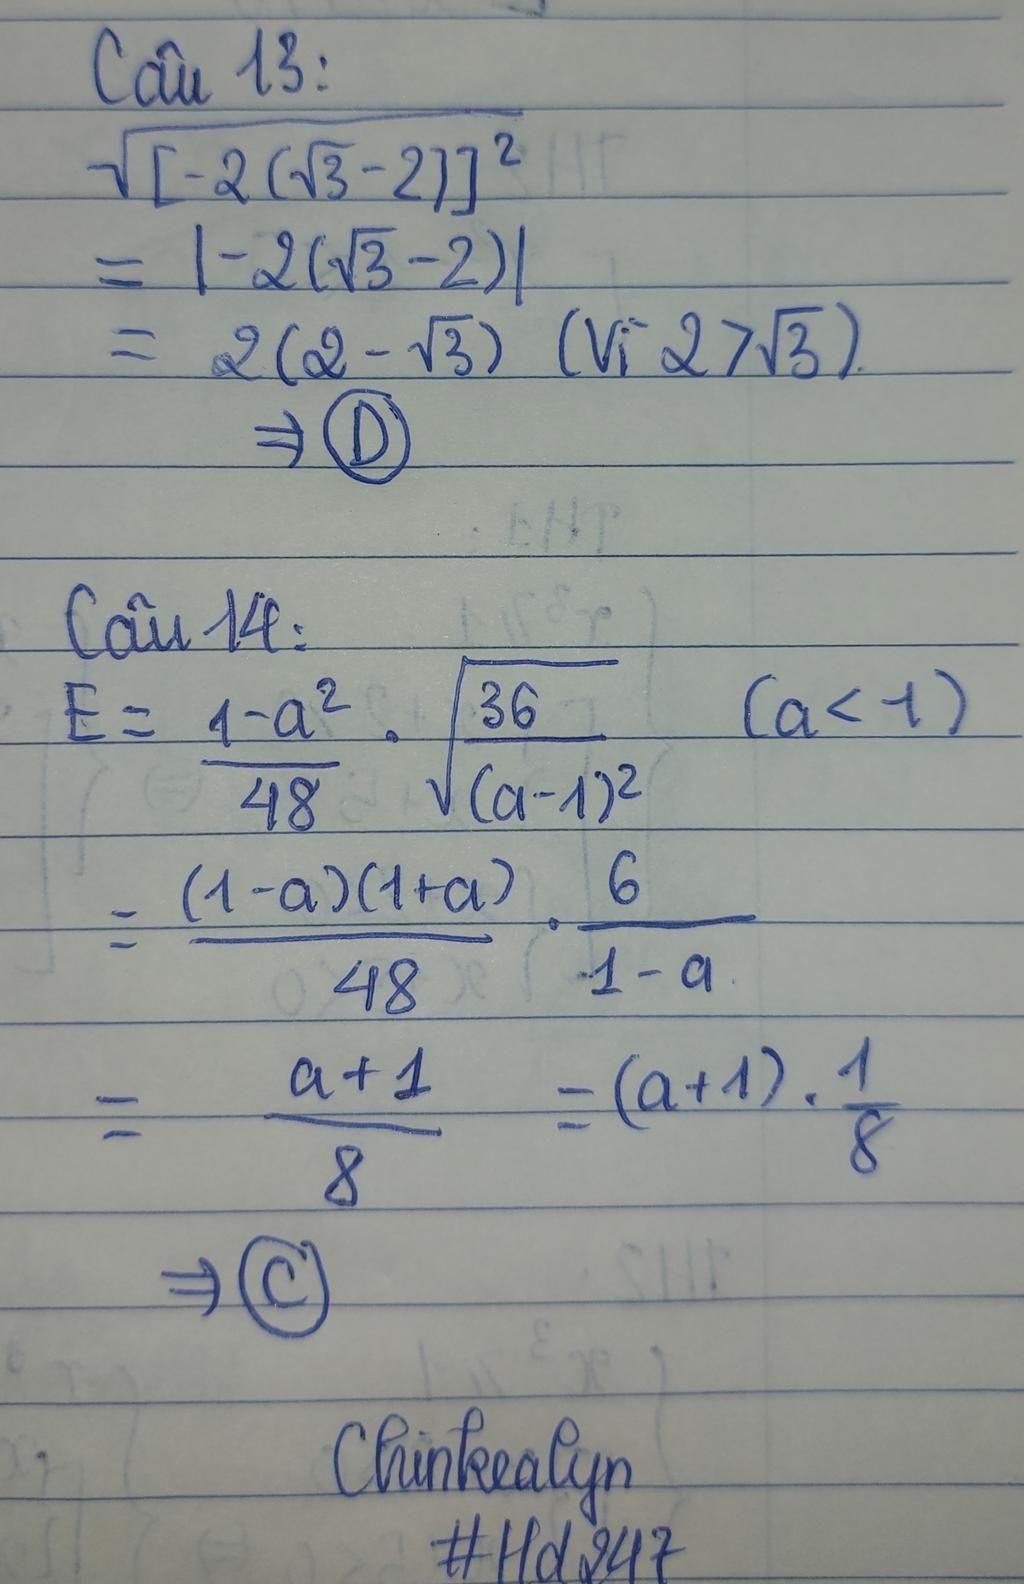 Câu 13:
√[-2(√3-2)]²
= |-2(√3-2)|
= 2(2-√3) (Vì 2>√3).
⇒ D
Câu 14:
E = (1-a²)/48 . √(36/(a-1)²) (a<1)
= (1-a)(1+a)/48 . 6/(1-a)
= (a+1)/8 = (a+1) . 1/8
⇒ C
Chinkealyn
#Hd247